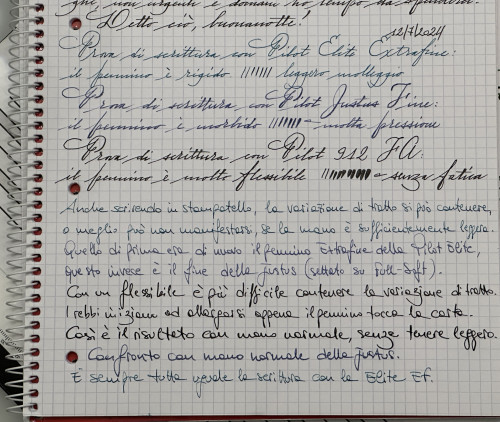 più, non urgenti e domani ho tempo da
Detto ciò, buonanotte!
12/7/2024
Prova di scrittura con Pilot Elite Extrafine:
il pennino è rigido leggero molleggio
Prova di scrittura con Pilot Justus Fine:
il pennino è morbido - molta pressione
Prova di scrittura con Pilot 912 FA:
il pennino è molto flessibile - senza fatica
Anche scrivendo in stampatello, la variazione di tratto si può contenere,
o meglio può non manifestarsi, se la mano è sufficientemente leggera.
Quello di prima era di nuovo il pennino Extrafine della Pilot Elite,
questo invece è il fine della Justus (settato su full-soft).
Con un flessibile è più difficile contenere la variazione di tratto.
I rebbi iniziano ad allargarsi appena il pennino tocca la carta.
Così è il risultato con mano normale, senza tenere leggero.
Confronto con mano normale della Justus.
È sempre tutta uguale la scrittura con la Elite EF.